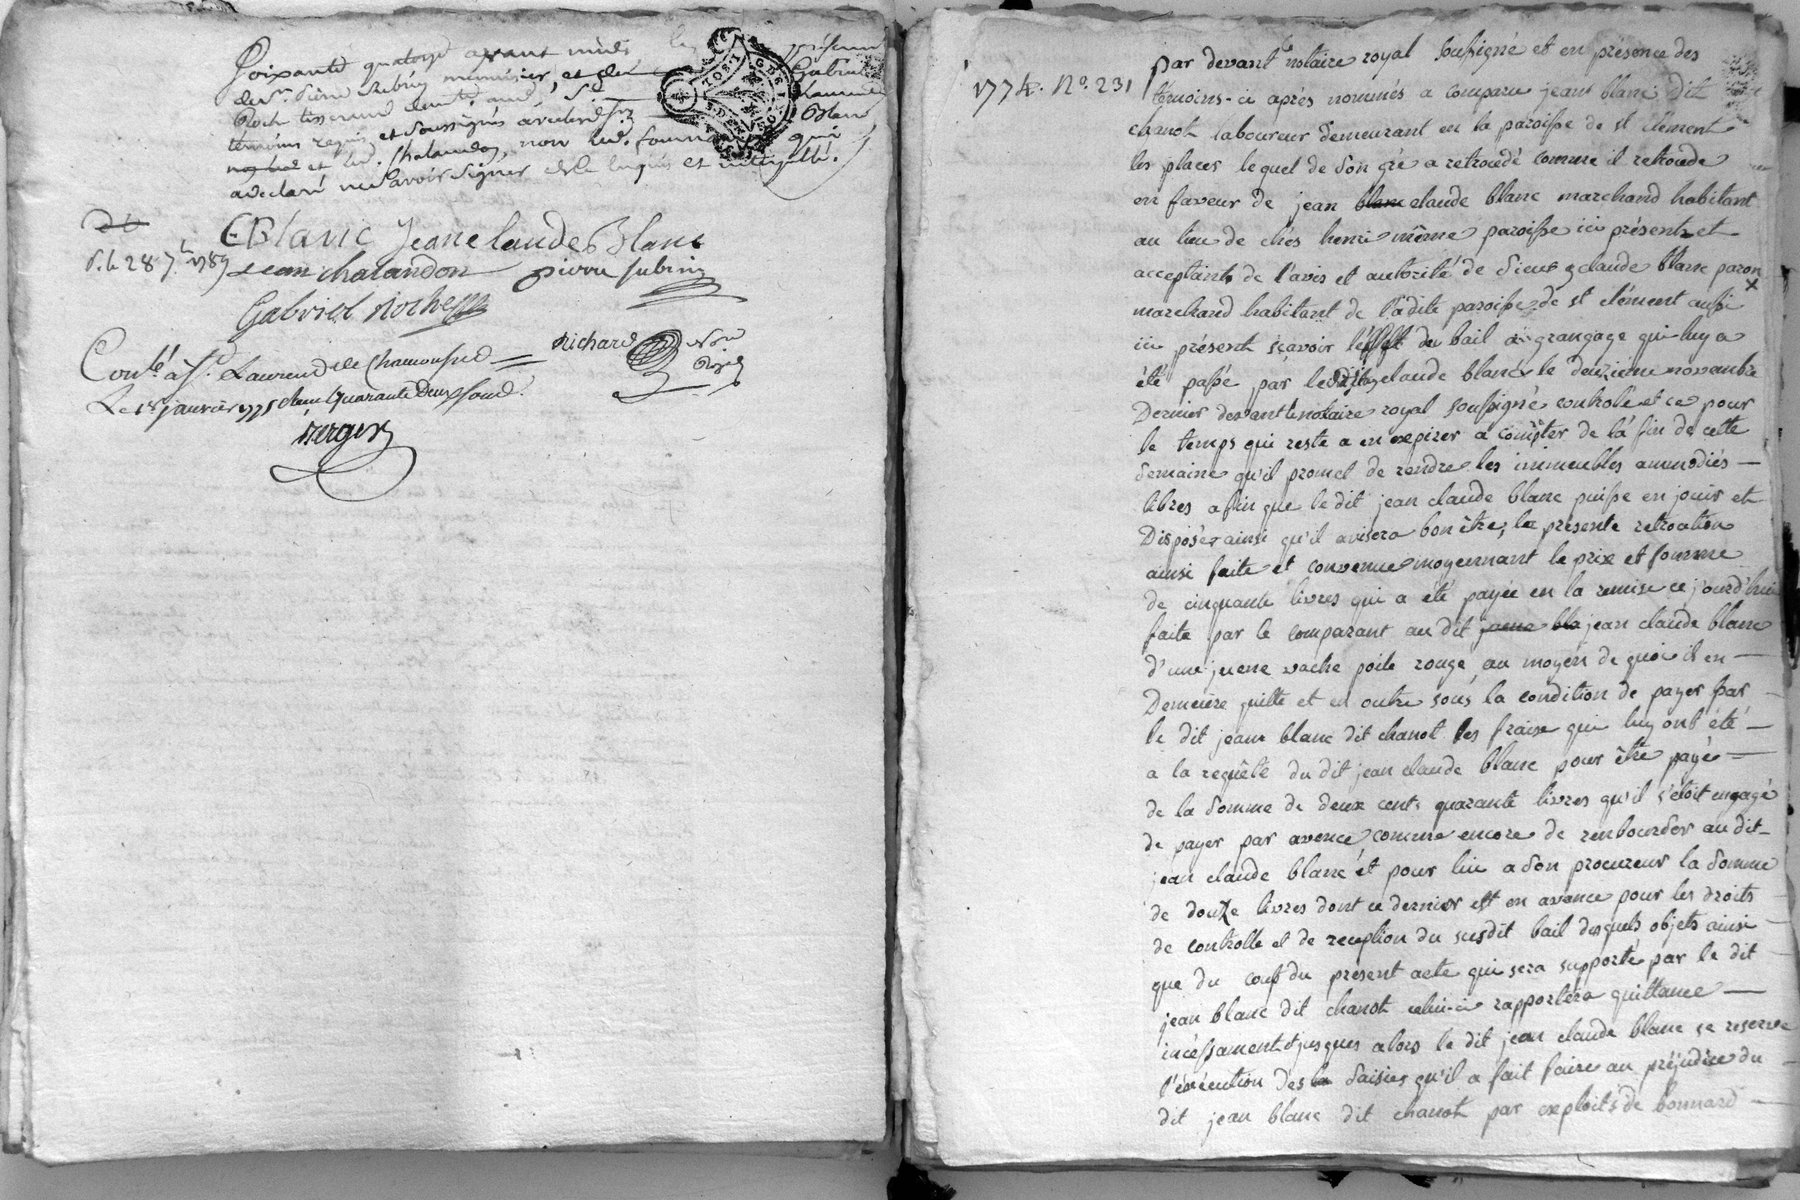 soixante quatorze avant midi
de sr. pierre subrin menuisier, et
Roch tisserand
témoins requis et soussignés avec led. sr.
et led. chalandon, non led.
qui
a declaré ne savoir signer de ce enquis et interpellé.
présence
Gabriel
Blanc
CBlanc Jeanclaude Blanc
d. le 28 7.bre 1789
Jean chalandon pierre subrin
Gabriel Roche
Richard
Nore
Royal
Conlé à St. Laurend de Chamousset
Le 1er janvier 1775 Reçu Quarante Deux sous.
Berger
1774. No. 231
par devant le notaire royal soussigné et en présence des
témoins ci après nommés a comparu jean blanc dit
chanot laboureur demeurant en la paroisse de st clément
les places lequel de son gré a retrocédé comme il retrocede
en faveur de jean blanc claude blanc marchand habitant
au lieu de chés henri même paroisse ici présent et
acceptant de l'avis et autorité de sieur claude blanc
marchand habitant de ladite paroisse de st clément aussi
ici présent sçavoir l'effet du bail à grangage qui luy a
été passé par ledit claude blanc le deuzieme novembre
Dernier devant le notaire royal soussigné controlé et ce pour
le temps qui reste a en expirer a compter de la fin de cette
semaine qu'il promet de rendre les immeubles ammodiés
libres afin que le dit jean claude blanc puisse en jouir et
Disposer ainsi qu'il avisera bon être, la présente retrocation
ainsi faite et convenue moyennant le prix et somme
de cinquante livres qui a été payée en la remise ce jourd'hui
faite par le comparant au dit jean bla jean claude blanc
d'une juene vache poile rouge au moyen de quoi il en
Demeure quitte et en outre sous la condition de payer par
le dit jean blanc dit chanot les fraise qui luy ont été
a la requête du dit jean claude blanc pour être payé
de la somme de deux cent quarante livres qu'il s'étoit engagé
de payer par avence, comme encore de rembourser au dit
jean claude blanc et pour lui a son procureur la somme
de douze livres dont ce dernier est en avance pour les droits
de controlle et de reception du susdit bail desquels objets ainsi
que du cout du présent acte qui sera supporté par le dit
jean blanc dit chanot celui-ci rapportera quittance
incessament et jusques alors le dit jean claude blanc se reserve
l'éxécution des la saisies qu'il a fait faire au préjudice du
dit jean blanc dit chanot par exploits de bonnard